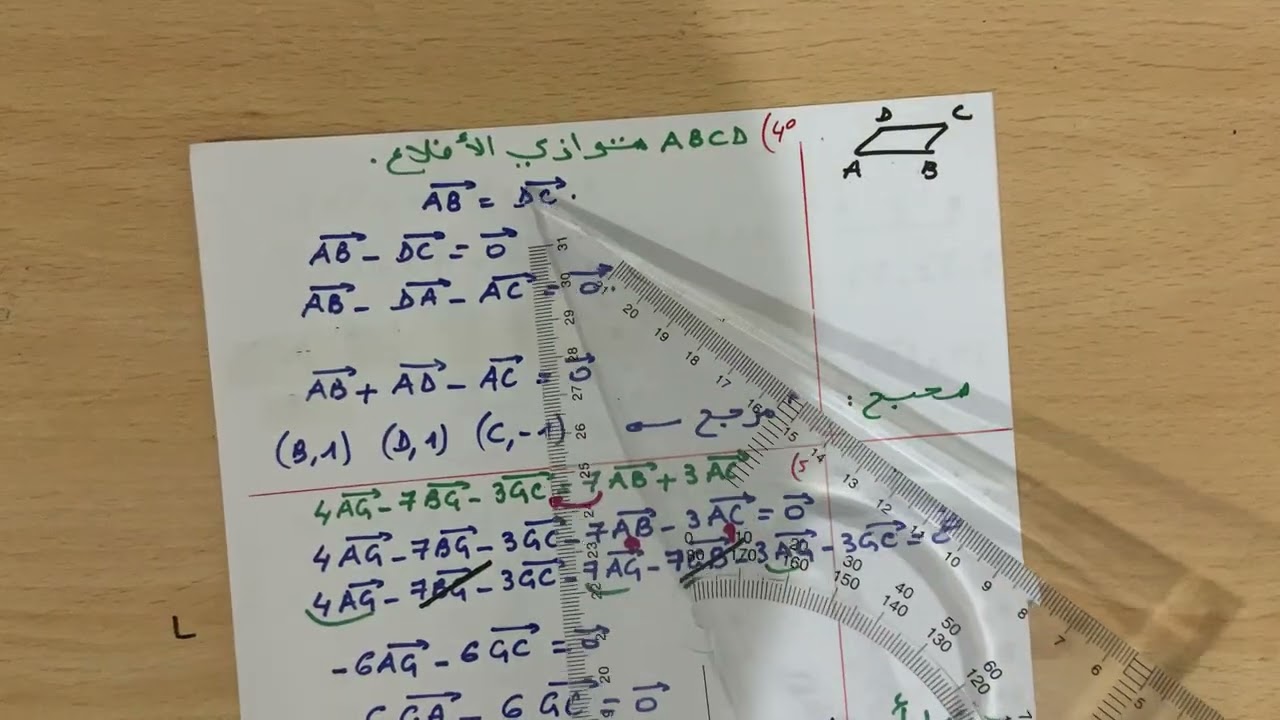 4°) ABCD متوازي الأضلاع.
D C
A B
AB = DC.
AB - DC = 0
AB - DA - AC = 0.
AB + AD - AC = 0
صحيح :
(B,1) (D,1) (C,-1) ← مرجح
5) 4AG - 7BG - 3GC = 7AB + 3AC
4AG - 7BG - 3GC - 7AB - 3AC = 0
4AG - 7BG - 3GC - 7AG - 7GB - 3AG - 3GC = 0
-6AG - 6GC = 0
6GA - 6GC = 0